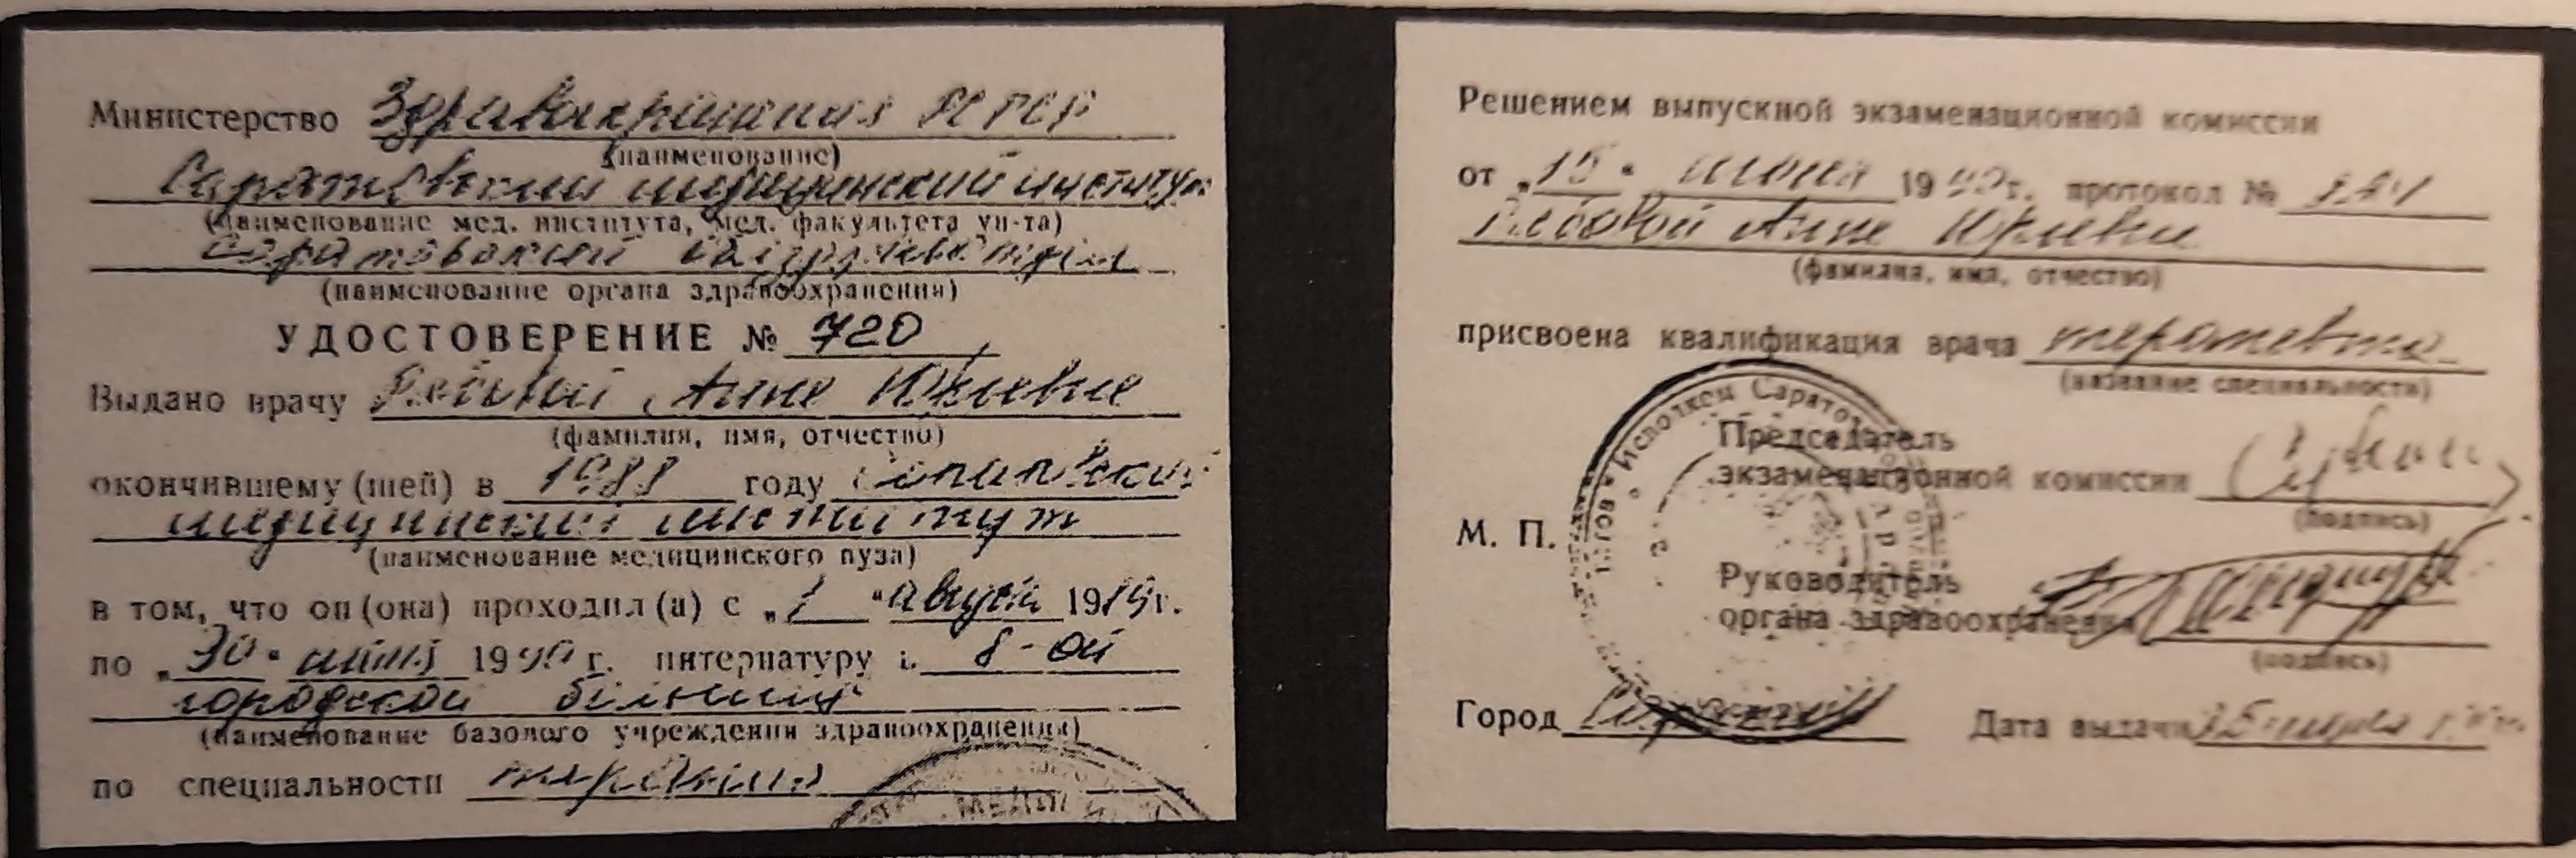 Министерство Здравоохранения РСФСР
(наименование)
Саратовский медицинский институт
(наименование мед. института, мед. факультета ун-та)
Саратовский облздравотдел
(наименование органа здравоохранения)
УДОСТОВЕРЕНИЕ № 720
Выдано врачу Анне Юрьевне
(фамилия, имя, отчество)
окончившему (шей) в 1988 году Саратовский
медицинский институт
(наименование медицинского вуза)
в том, что он (она) проходил (а) с „1" августа 19 г.
по „30" 1990 г. интернатуру в 8-ой
городской больнице
(наименование базового учреждения здравоохранения)
по специальности терапия
Решением выпускной экзаменационной комиссии
от „15" июня 1990 г. протокол №
Анне Юрьевне
(фамилия, имя, отчество)
присвоена квалификация врача терапевта
(название специальности)
Исполком Саратов
Председатель
экзаменационной комиссии
(подпись)
М. П.
Руководитель
органа здравоохранения
(подпись)
Город Саратов Дата выдачи